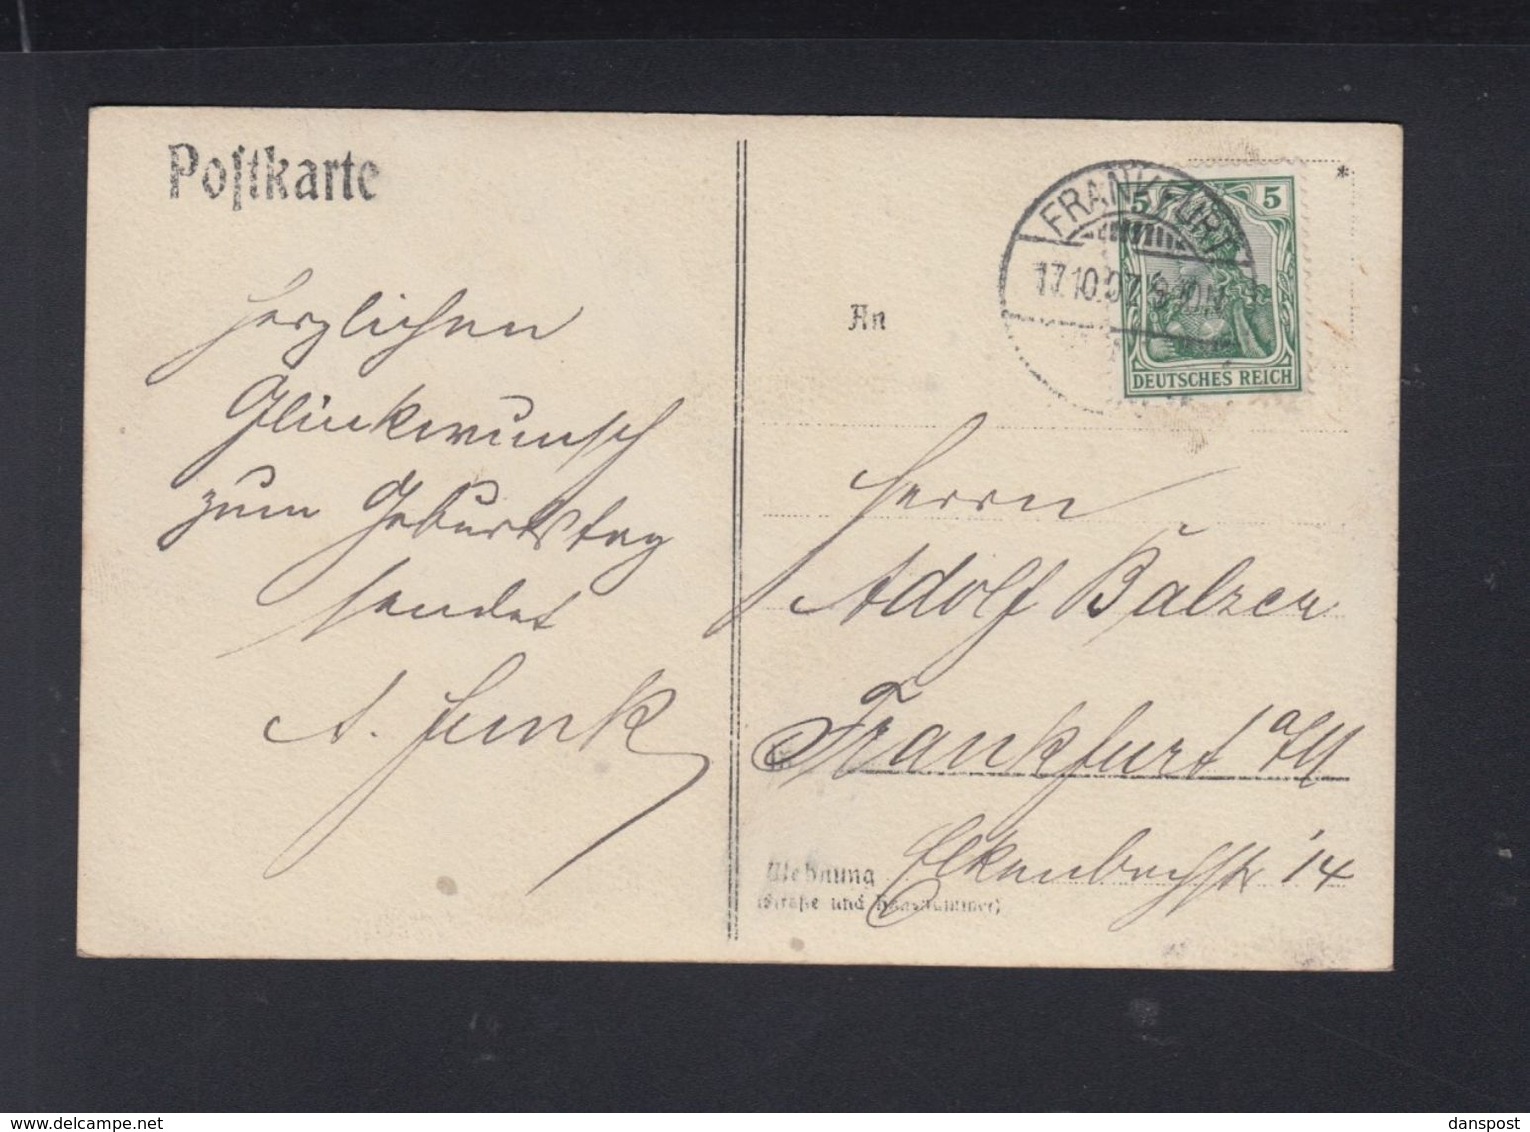 Postkarte
Herzlichen
Glückwunsch
zum Geburtstag
sendet
A. Funk
FRANKFURT
17.10.07
5 5
DEUTSCHES REICH
*
An
Herrn
Adolf Balzer
in Frankfurt a/M
Wohnung
(Straße und Hausnummer)
Elkenbachstr 14
www.delcampe.net
danspost